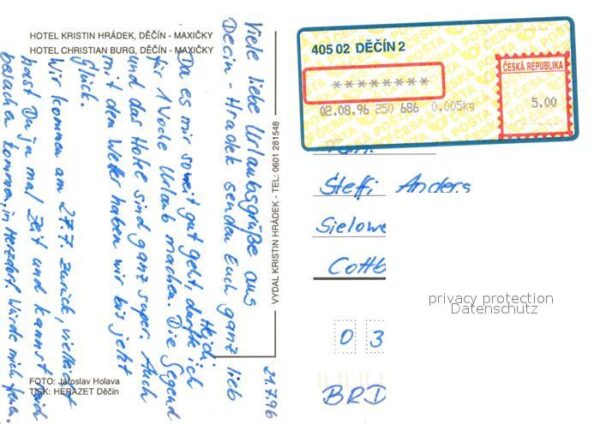 HOTEL KRISTIN HRÁDEK, DĚČÍN - MAXIČKY
HOTEL CHRISTIAN BURG, DĚČÍN - MAXIČKY
21.7.96
Viele liebe Urlaubsgrüße aus
Decin - Hradek senden Euch ganz lieb
Heidi
Da es mir soweit gut geht, durfte ich
für 1 Woche Urlaub machen. Die Gegend
und das Hotel sind ganz super. Auch
mit dem Wetter haben wir bis jetzt
Glück.
Wir kommen am 27.7. zurück, vielleicht
hast Du ja mal Zeit und kannst mich
besuchen kommen, in Herzdorf. Würde mich freun.
FOTO: Jaroslav Holava
TISK: HERAZET Děčín
VYDAL KRISTIN HRÁDEK - TEL: 0601 281548
405 02 DĚČÍN 2
********
02.08.96 250 686 0.005kg
ČESKÁ REPUBLIKA
5.00
ČESKÁ POŠTA
Steffi Anders
Sielowe
Cottb
0 3
BRD
privacy protection
Datenschutz